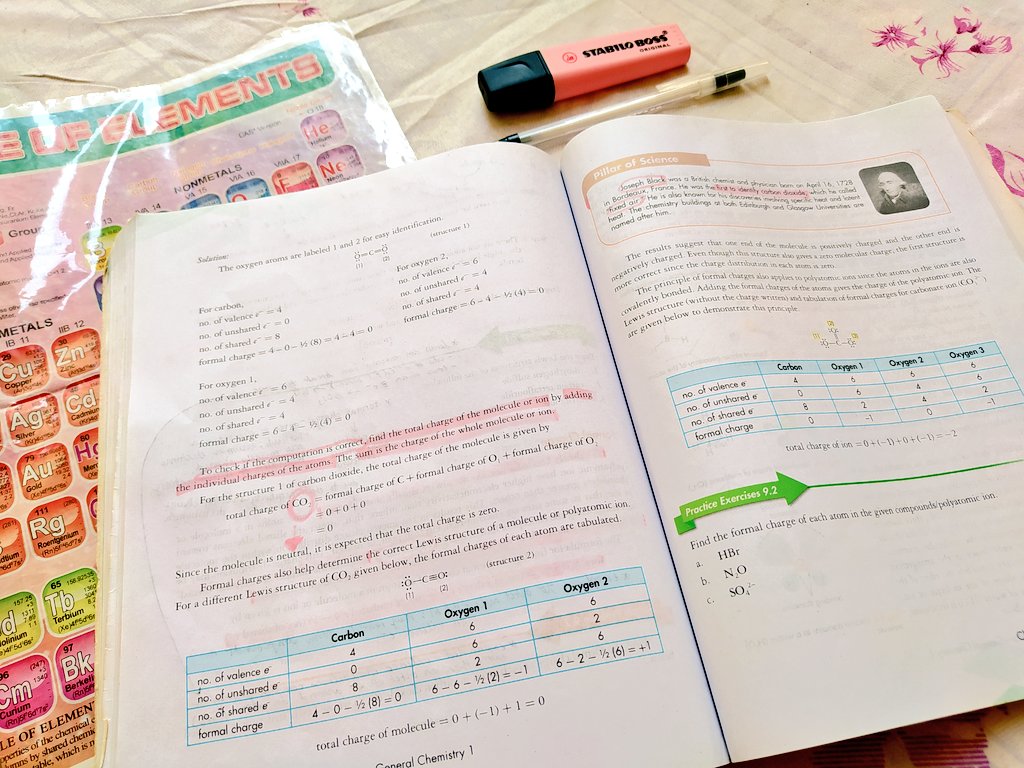 STABILO BOSS
ORIGINAL
E OF ELEMENTS
He
Helium
NONMETALS
VIA 16
VIIA 17
Ne
METALS
IB 11
IIB 12
29
Cu
Copper
Zn
Ag
Silver
Cd
Cadmium
79
Au
Gold
80
111
Rg
Roentgenium
65
158.92535
Tb
Terbium
96
(247)
Cm
Curium
97
Bk
LE OF ELEMEN
Solution:
The oxygen atoms are labeled 1 and 2 for easy identification.
:Ö=C=Ö:
(1) (2)
(structure 1)
For carbon,
no. of valence e⁻ = 4
no. of unshared e⁻ = 0
no. of shared e⁻ = 8
formal charge = 4 – 0 – ½ (8) = 4 – 4 = 0
For oxygen 2,
no. of valence e⁻ = 6
no. of unshared e⁻ = 4
no. of shared e⁻ = 4
formal charge = 6 – 4 – ½ (4) = 0
For oxygen 1,
no. of valence e⁻ = 6
no. of unshared e⁻ = 4
no. of shared e⁻ = 4
formal charge = 6 – 4 – ½ (4) = 0
To check if the computation is correct, find the total charge of the molecule or ion by adding
the individual charges of the atoms. The sum is the charge of the whole molecule or ion.
For the structure 1 of carbon dioxide, the total charge of the molecule is given by
total charge of CO₂ = formal charge of C + formal charge of O₁ + formal charge of O₂
= 0 + 0 + 0
= 0
Since the molecule is neutral, it is expected that the total charge is zero.
Formal charges also help determine the correct Lewis structure of a molecule or polyatomic ion.
For a different Lewis structure of CO₂ given below, the formal charges of each atom are tabulated.
:Ö–C≡O:
(1) (2)
(structure 2)
Carbon Oxygen 1 Oxygen 2
no. of valence e⁻ 4 6 6
no. of unshared e⁻ 0 6 2
no. of shared e⁻ 8 2 6
formal charge 4 – 0 – ½ (8) = 0 6 – 6 – ½ (2) = –1 6 – 2 – ½ (6) = +1
total charge of molecule = 0 + (–1) + 1 = 0
General Chemistry 1
Pillar of Science
Joseph Black was a British chemist and physician born on April 16, 1728
in Bordeaux, France. He was the first to identify carbon dioxide, which he called
"fixed air." He is also known for his discoveries involving specific heat and latent
heat. The chemistry buildings at both Edinburgh and Glasgow Universities are
named after him.
The results suggest that one end of the molecule is positively charged and the other end is
negatively charged. Even though this structure also gives a zero molecular charge, the first structure is
more correct since the charge distribution in each atom is zero.
The principle of formal charges also applies to polyatomic ions since the atoms in the ions are also
covalently bonded. Adding the formal charges of the atoms gives the charge of the polyatomic ion. The
Lewis structure (without the charge written) and tabulation of formal charges for carbonate ion (CO₃²⁻)
are given below to demonstrate this principle.
Carbon Oxygen 1 Oxygen 2 Oxygen 3
no. of valence e⁻ 4 6 6 6
no. of unshared e⁻ 0 6 4 6
no. of shared e⁻ 8 2 4 2
formal charge 0 –1 0 –1
total charge of ion = 0 + (–1) + 0 + (–1) = –2
Practice Exercises 9.2
Find the formal charge of each atom in the given compounds/polyatomic ion.
a. HBr
b. N₂O
c. SO₄²⁻